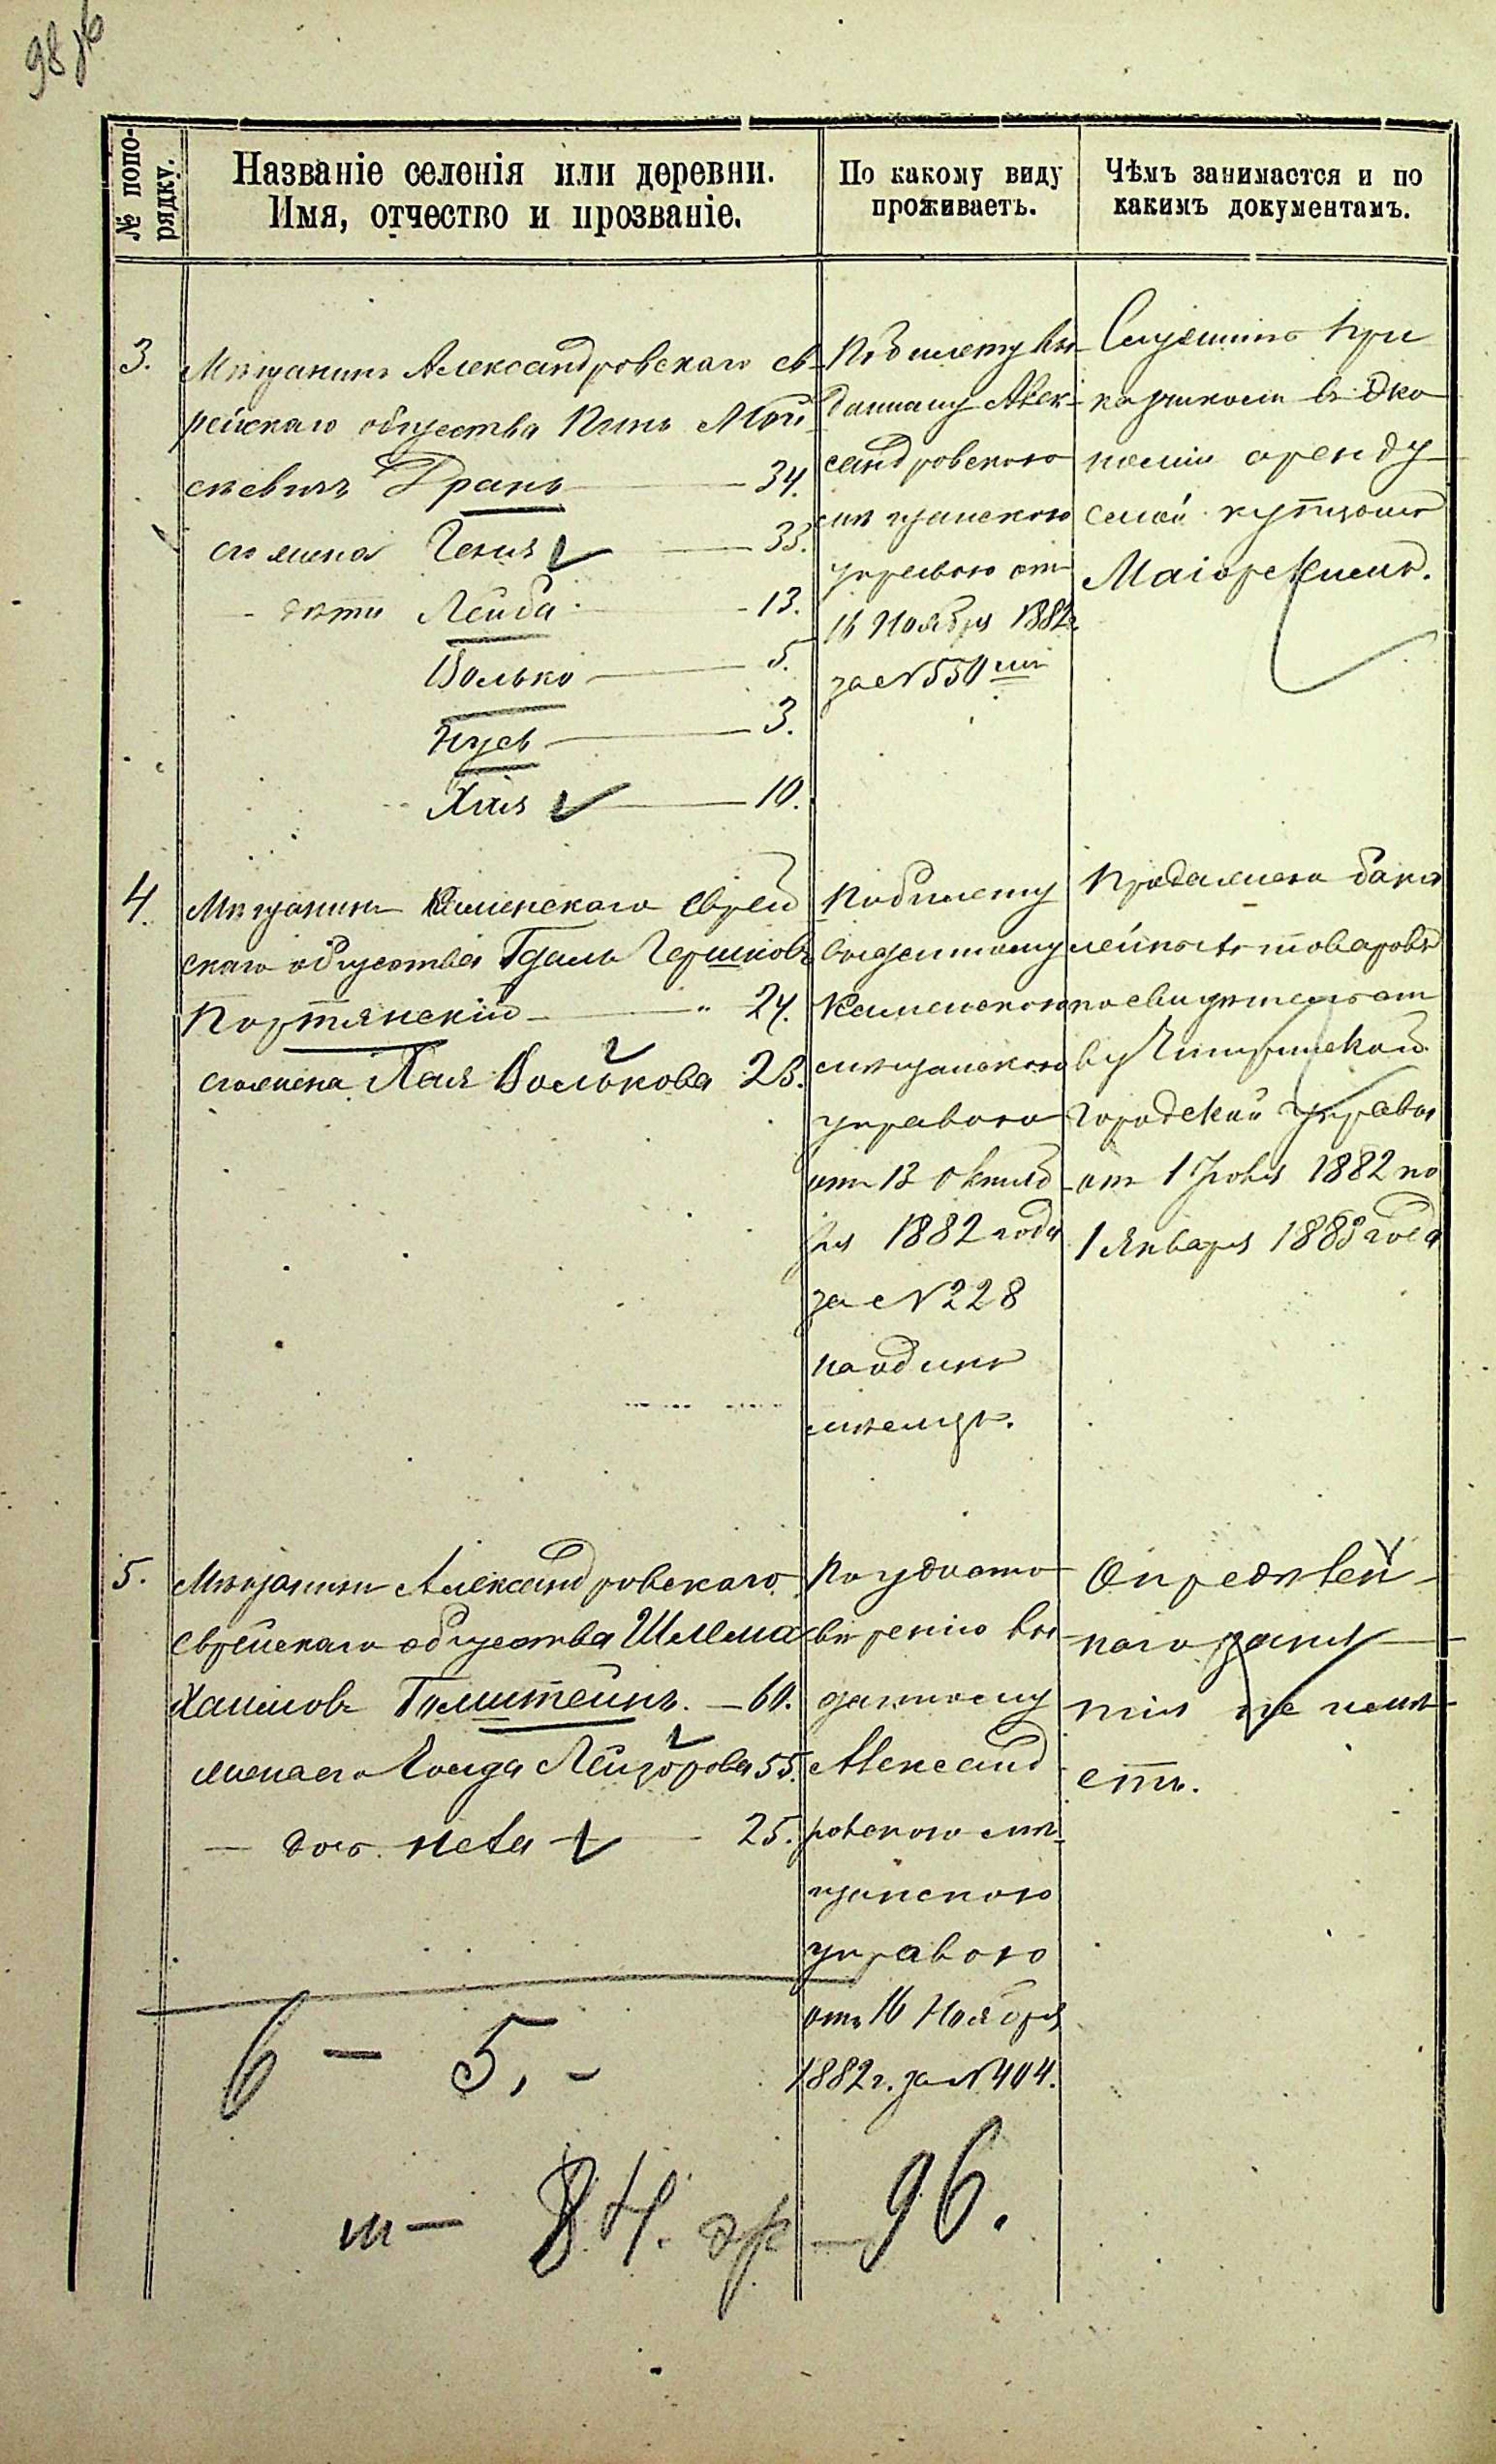 98 об
№ попо-
рядку.
Названіе селенія или деревни.
Имя, отчество и прозваніе.
По какому виду
проживаетъ.
Чѣмъ занимается и по
какимъ документамъ.
3.
Мѣщанинъ Александровскаго ев-
рейскаго общества Мой-
сеевичъ Грань 34.
его жена Геня 33.
дѣти Лейба 13.
Волько 5.
Нусь 3.
Хая 10.
По билету вы-
данному Алек-
сандровскою
мѣщанскою
управою отъ
16 Ноября 1882 г.
за № 550 мъ
Служитъ при
кащикомъ въ Эко
номіи аренду
емой купцомъ
4.
Мѣщанинъ Каменскаго Еврей
скаго общества Гдаль Гершковъ
Портянскій 24.
его жена Лея Волькова 23.
По билету
выданному
Каменскою
мѣщанскою
управою
отъ 13 Октяб
ря 1882 года
за № 228
на одинъ
мѣсяцъ.
Продажею бака
лейныхъ товаровъ
по свидѣтельст
ву Чигиринской
городской управы
отъ 1 1882 по
1 Января 1883 года
5.
Мѣщанинъ Александровскаго
еврейскаго общества Шлема
Хаимовъ Голштейнъ. 60.
жена его Лейзорова 55.
дочь 25.
По удосто
вѣренію вы
данному
Александ
ровскою мѣ-
щанскою
управою
отъ 16 Ноября
1882 г. за № 404.
Опредѣлен-
наго заня
тія не имѣ
етъ.
6 - 5. -
м - 84. 96.